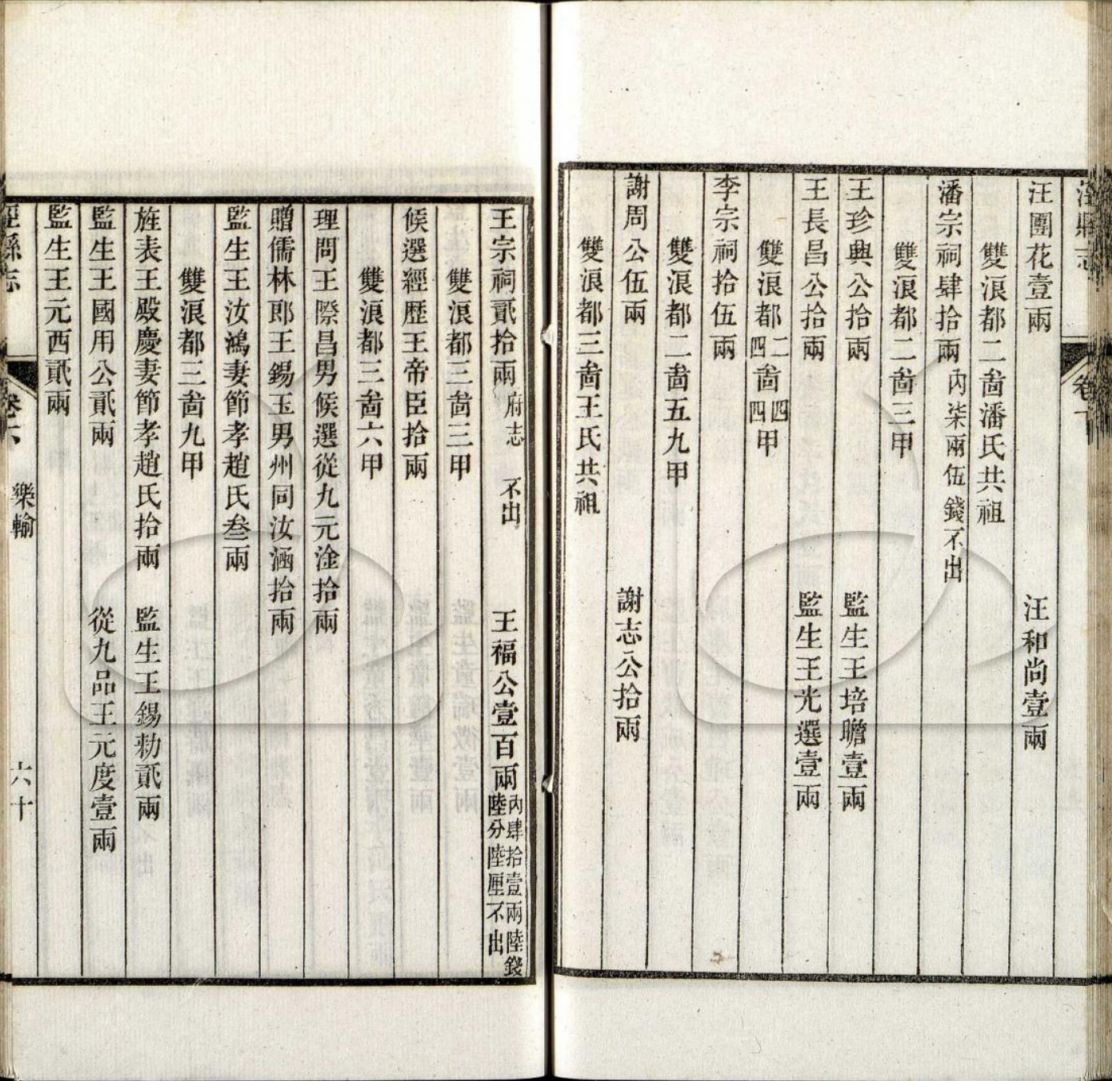 汪團花壹兩　汪和尚壹兩
雙浪都二啚潘氏共祖
潘宗祠肆拾兩內柒兩伍錢不出
雙浪都二啚三甲
王珍興公拾兩　監生王培瞻壹兩
王長昌公拾兩　監生王光選壹兩
雙浪都二啚四甲
四　四
李宗祠拾伍兩
雙浪都二啚五九甲
謝周公伍兩　謝志公拾兩
雙浪都三啚王氏共祖
王宗祠貳拾兩府志不出　王福公壹百兩內肆拾壹兩陸錢陸分陸厘不出
雙浪都三啚三甲
候選經歷王帝臣拾兩
雙浪都三啚六甲
理問王際昌男候選從九元淦拾兩
贈儒林郎王錫玉男州同汝涵拾兩
監生王汝鴻妻節孝趙氏叁兩
雙浪都三啚九甲
旌表王殿慶妻節孝趙氏拾兩　監生王錫勑貳兩
監生王國用公貳兩　從九品王元度壹兩
監生王元西貳兩
涇縣志　卷六　樂輸　六十